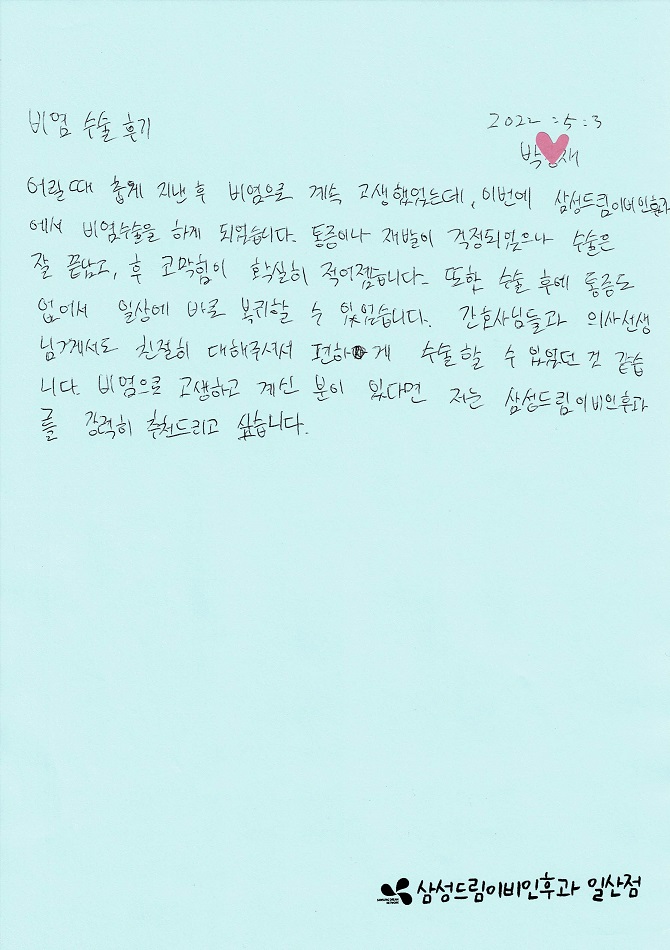 비염 수술 후기
2022 . 5 . 3
박 재
어릴때 춥게 지낸 후 비염으로 계속 고생했었는데, 이번에 삼성드림이비인후과
에서 비염수술을 하게 되었습니다. 통증이나 재발이 걱정되었으나 수술은
잘 끝났고, 후 코막힘이 확실히 적어졌습니다. 또한 수술 후에 통증도
없어서 일상에 바로 복귀할 수 있었습니다. 간호사님들과 의사선생
님께서도 친절히 대해주셔서 편하게 수술할 수 있었던 것 같습
니다. 비염으로 고생하고 계신 분이 있다면 저는 삼성드림이비인후과
를 강력히 추천드리고 싶습니다.
삼성드림이비인후과 일산점